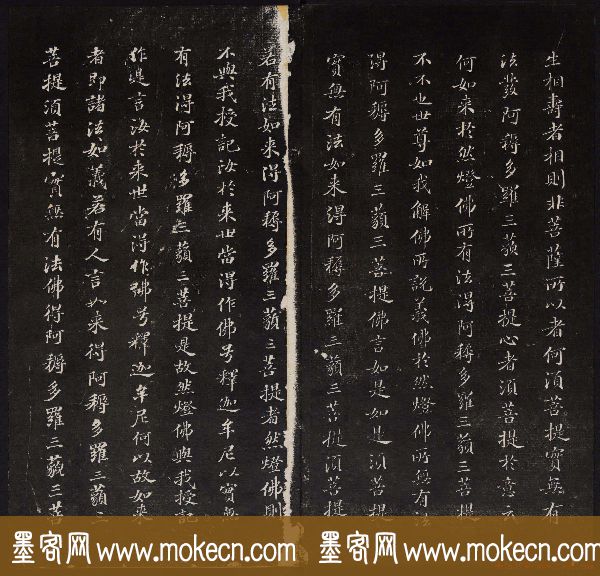 生相壽者相則非菩薩所以者何須菩提實無有
法發阿耨多羅三藐三菩提心者須菩提於意云
何如来於然燈佛所有法得阿耨多羅三藐三菩提
不不也世尊如我解佛所說義佛於然燈佛所無有法
得阿耨多羅三藐三菩提佛言如是如是須菩提
實無有法如来得阿耨多羅三藐三菩提須菩提
若有法如来得阿耨多羅三藐三菩提者然燈佛則
不與我授記汝於来世當得作佛号釋迦牟尼以實無
有法得阿耨多羅三藐三菩提是故然燈佛與我授記
作是言汝於来世當得作佛号釋迦牟尼何以故如来
者即諸法如義若有人言如来得阿耨多羅三藐三
菩提須菩提實無有法佛得阿耨多羅三藐三菩
墨客网 www.mokecn.com 墨客网 www.mokecn.com